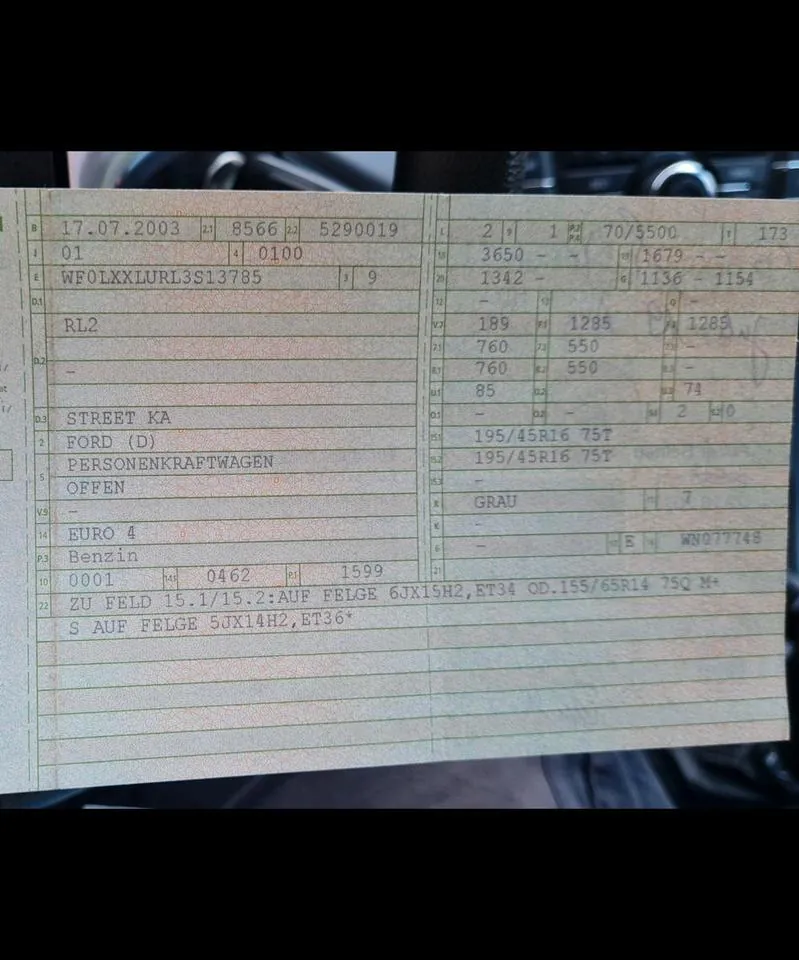 B 17.07.2003 2.1 8566 2.2 5290019
J 01 4 0100
E WF0LXXLURL3S13785 3 9
D.1
RL2
D.2 -
D.3 STREET KA
2 FORD (D)
5 PERSONENKRAFTWAGEN
OFFEN
V.9 -
14 EURO 4
P.3 Benzin
10 0001 14.1 0462 P.1 1599
L 2 9 1 P.2 P.4 70/5500 T 173
18 3650 - - 19 1679 - -
20 1342 - G 1136 - 1154
12 - 13 - Q -
V.7 189 F.1 1285 F.2 1285
7.1 760 7.2 550 7.3 -
8.1 760 8.2 550 8.3 -
U.1 85 U.2 U.3 74
O.1 - O.2 - S.1 2 S.2 0
15.1 195/45R16 75T
15.2 195/45R16 75T
15.3 -
R GRAU 11 7
K -
6 - 17 E 16 WN077748
21
22 ZU FELD 15.1/15.2:AUF FELGE 6JX15H2,ET34 OD.155/65R14 75Q M+
S AUF FELGE 5JX14H2,ET36*